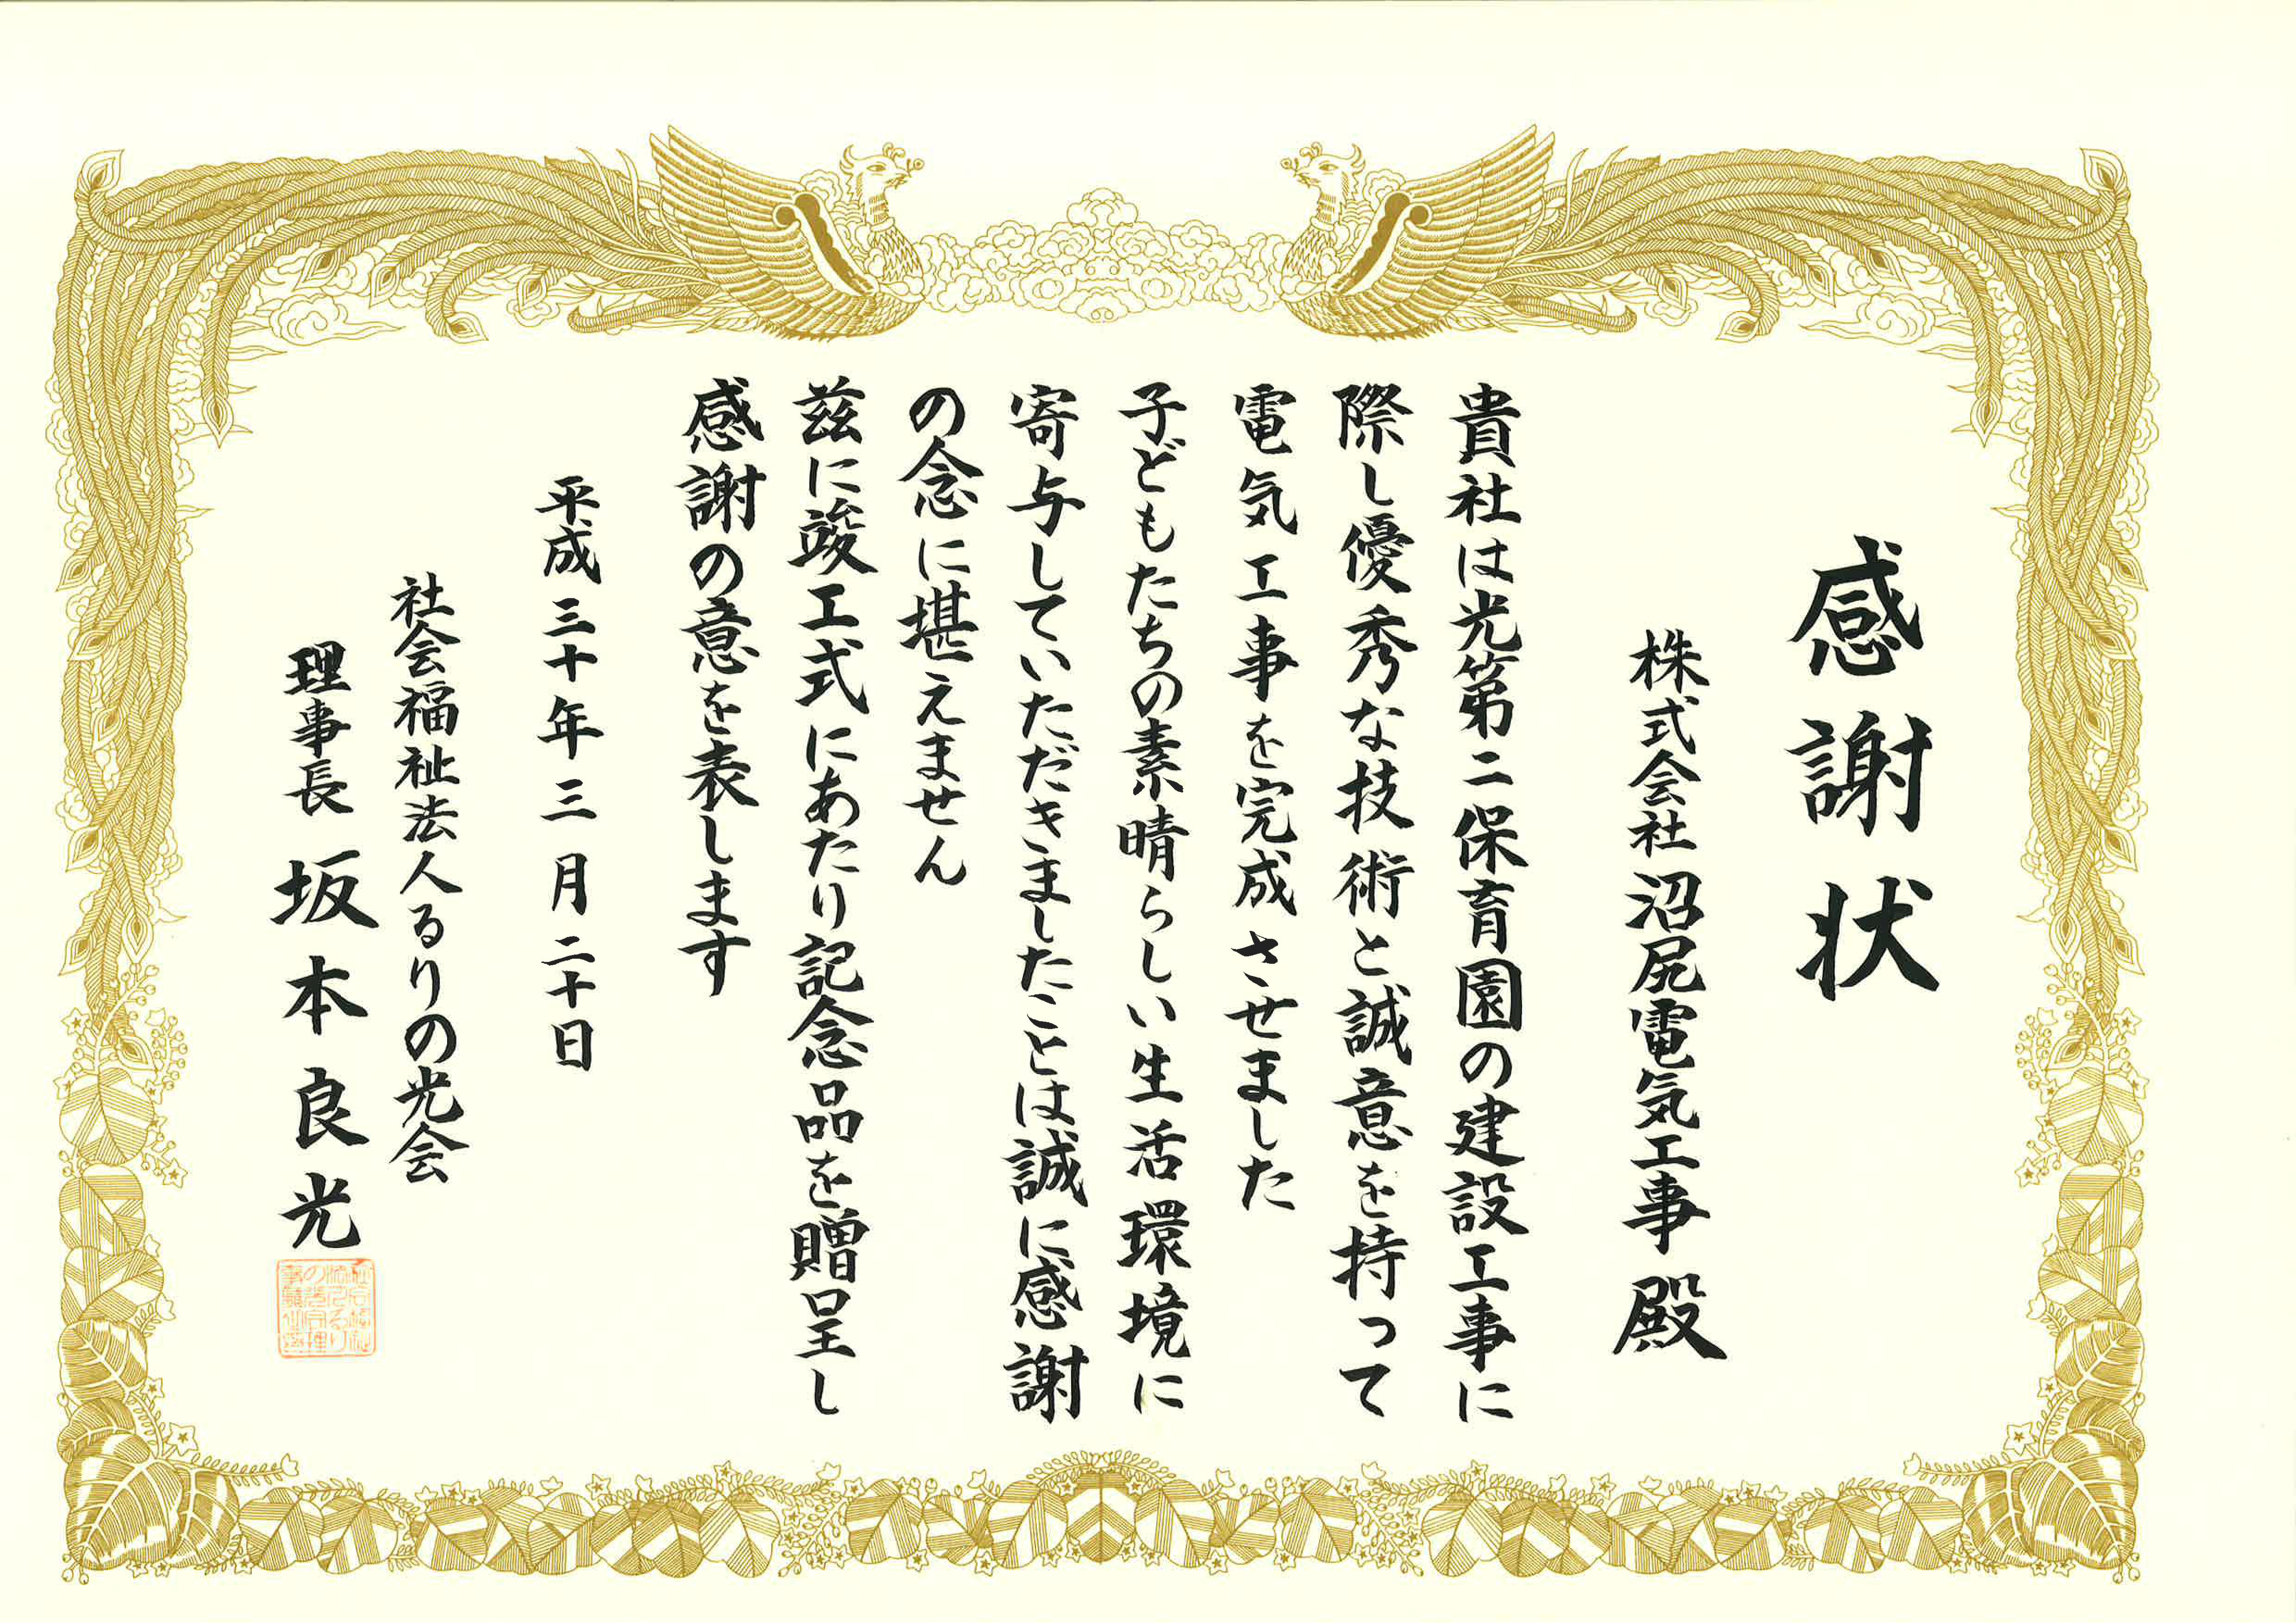 感謝状
株式会社 沼尻電気工事 殿
貴社は光第二保育園の建設工事に
際し優秀な技術と誠意を持って
電気工事を完成させました
子どもたちの素晴らしい生活環境に
寄与していただきましたことは誠に感謝
の念に堪えません
茲に竣工式にあたり記念品を贈呈し
感謝の意を表します
平成三十年三月二十日
社会福祉法人るりの光会
理事長 坂本良光